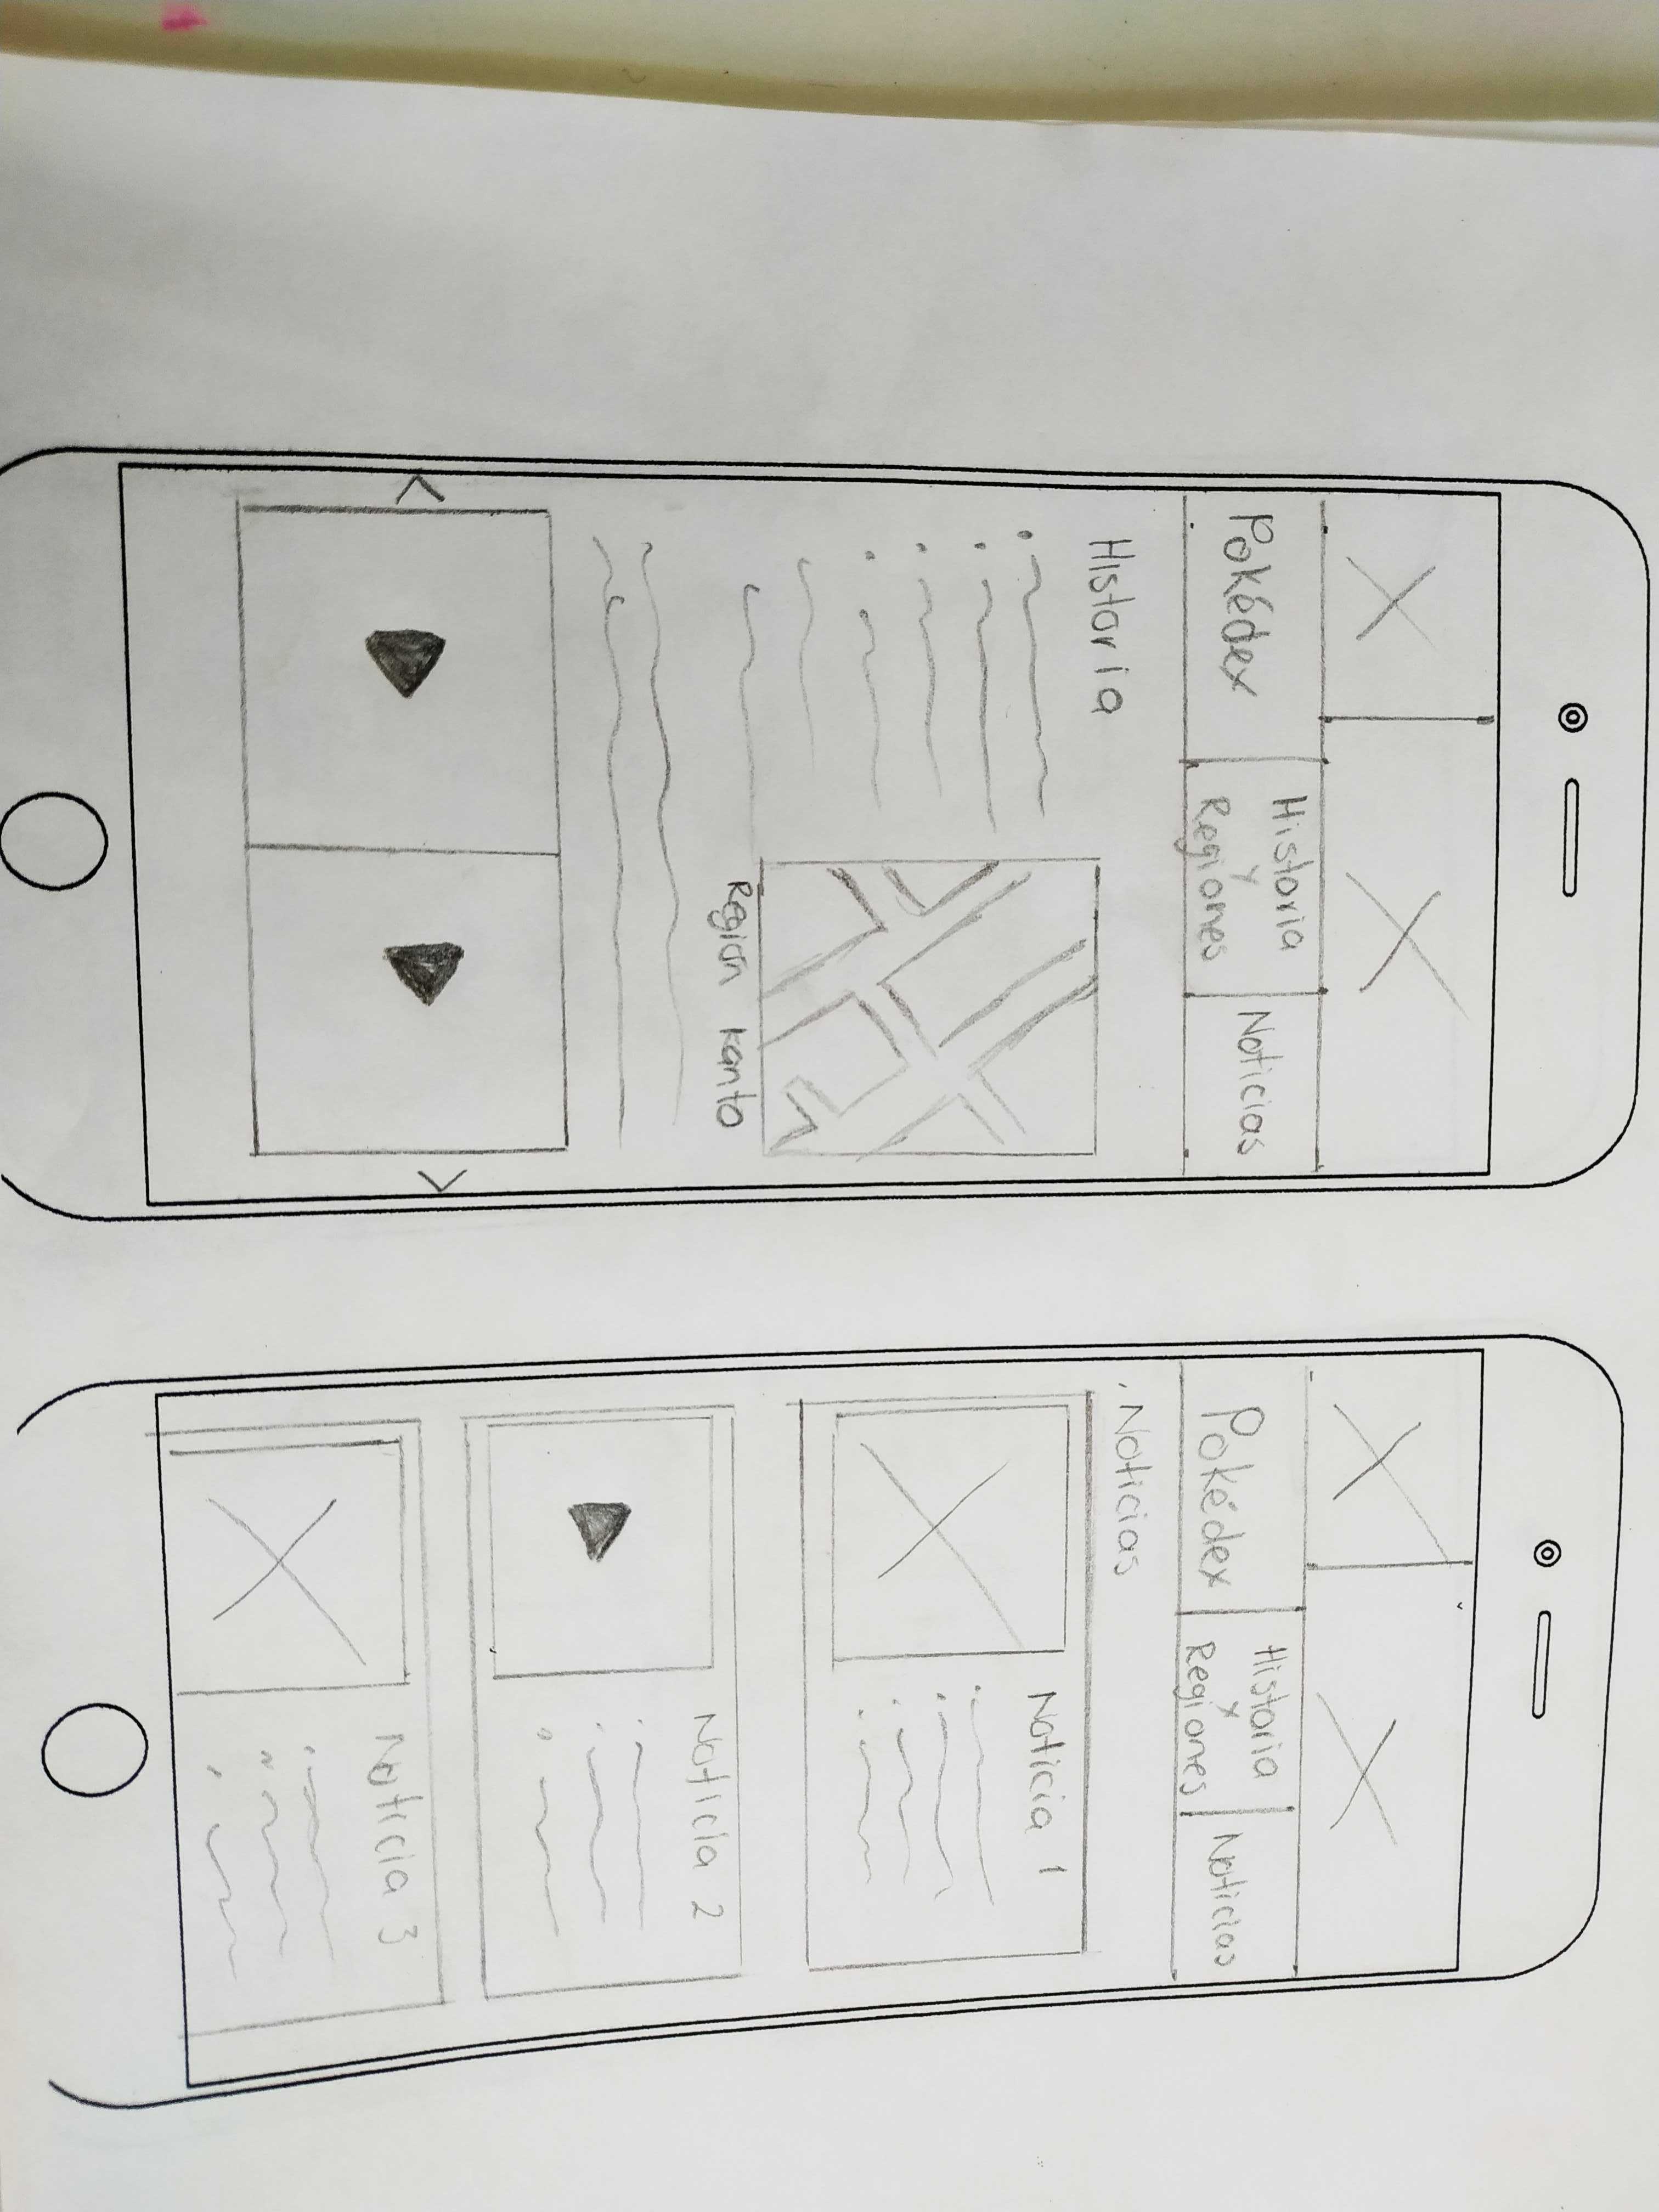 Pokédex
Historia
y
Regiones
Noticias
Historia
Region Kanto
Pokédex
Historia
y
Regiones
Noticias
Noticias
Noticia 1
Noticia 2
Noticia 3